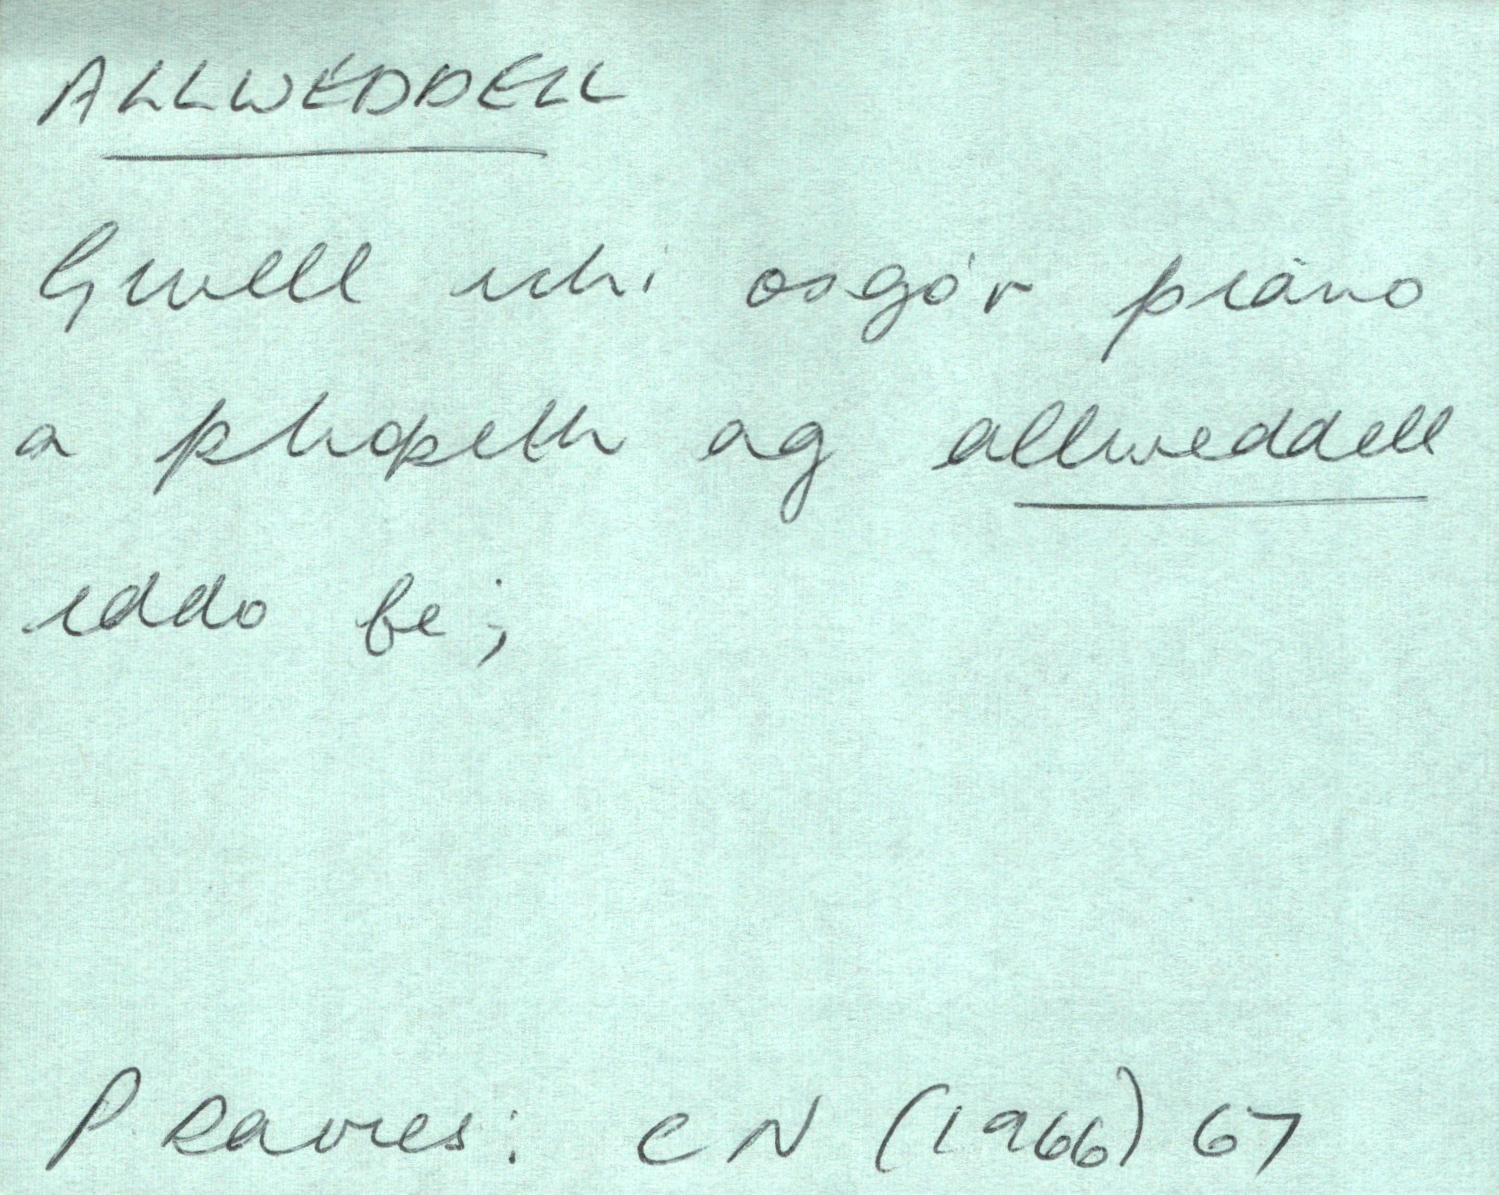 ALLWEDDELL
Gwell ichi osgo'r piano
a phopeth ag allweddell
iddo fe;
P Davies: CN (1966) 67